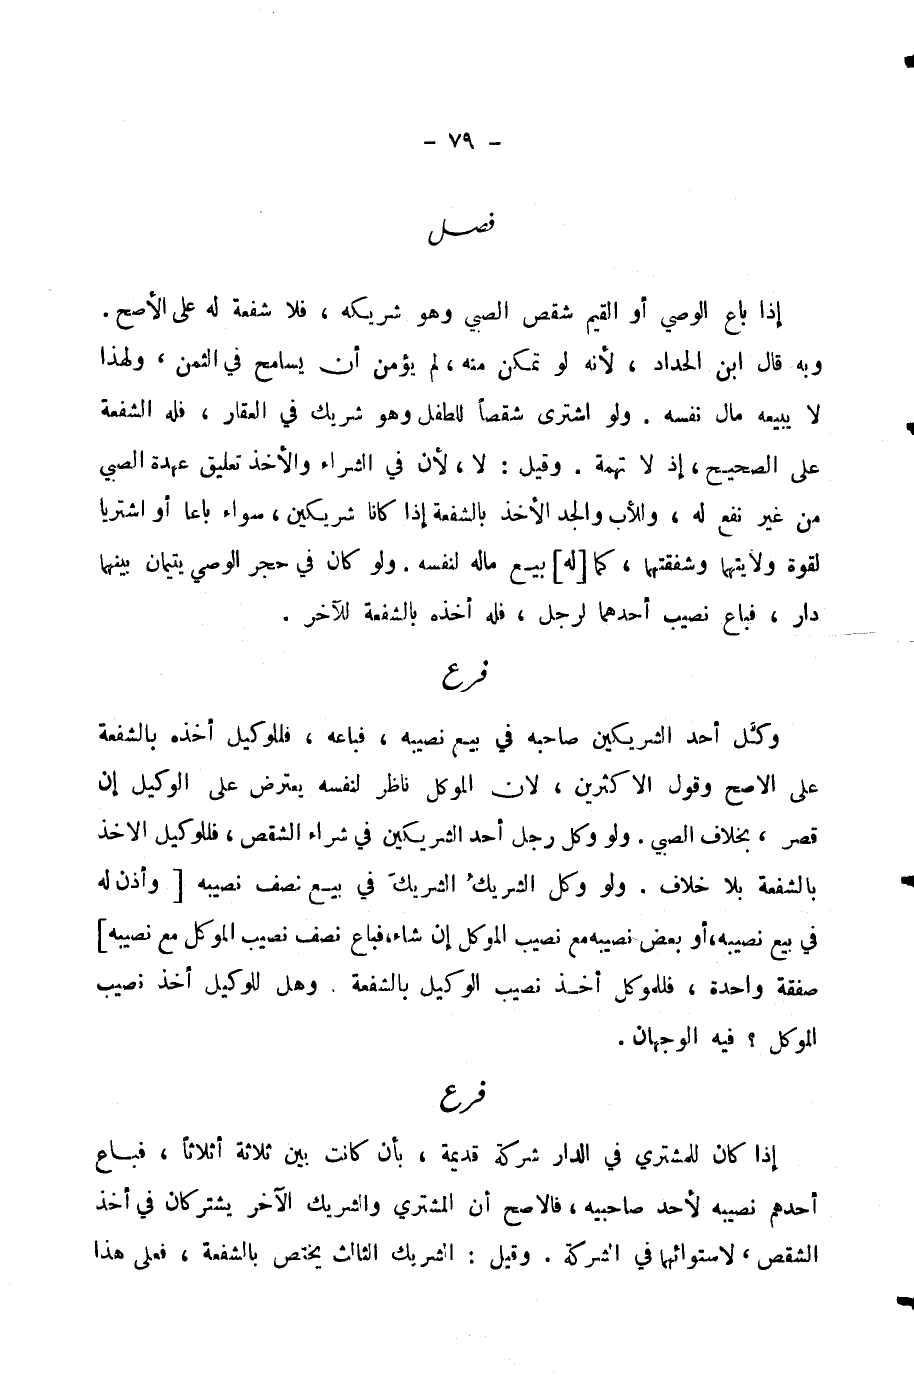 - ٧٩ -
فصل
إذا باع الوصي أو القيم شقص الصبي وهو شريكه ، فلا شفعة له على الأصح .
وبه قال ابن الحداد ، لأنه لو تمكن منه ، لم يؤمن أن يسامح في الثمن ، ولهذا
لا يبيعه مال نفسه . ولو اشترى شقصاً للطفل وهو شريك في العقار ، فله الشفعة
على الصحيح ، إذ لا تهمة . وقيل : لا ، لأن في الشراء والأخذ تعليق عهدة الصبي
من غير نفع له ، وللأب والجد الأخذ بالشفعة إذا كانا شريكين ، سواء باعا أو اشتريا
لقوة ولايتهما وشفقتهما ، كما [له] بيع ماله لنفسه . ولو كان في حجر الوصي يتيمان بينهما
دار ، فباع نصيب أحدهما لرجل ، فله أخذه بالشفعة للآخر .
فرع
وكَّل أحد الشريكين صاحبه في بيع نصيبه ، فباعه ، فللوكيل أخذه بالشفعة
على الاصح وقول الاكثرين ، لان الموكل ناظر لنفسه يعترض على الوكيل إن
قصر ، بخلاف الصبي . ولو وكل رجل أحد الشريكين في شراء الشقص ، فللوكيل الاخذ
بالشفعة بلا خلاف . ولو وكل الشريكُ الشريكَ في بيع نصف نصيبه [ وأذن له
في بيع نصيبه،أو بعض نصيبه مع نصيب الموكل إن شاء،فباع نصف نصيب الموكل مع نصيبه]
صفقة واحدة ، فللموكل أخذ نصيب الوكيل بالشفعة . وهل للوكيل أخذ نصيب
الموكل ؟ فيه الوجهان .
فرع
إذا كان للمشتري في الدار شركة قديمة ، بأن كانت بين ثلاثة أثلاثاً ، فباع
أحدهم نصيبه لأحد صاحبيه ، فالاصح أن المشتري والشريك الآخر يشتركان في أخذ
الشقص ، لاستوائهما في الشركة . وقيل : الشريك الثالث يختص بالشفعة ، فعلى هذا